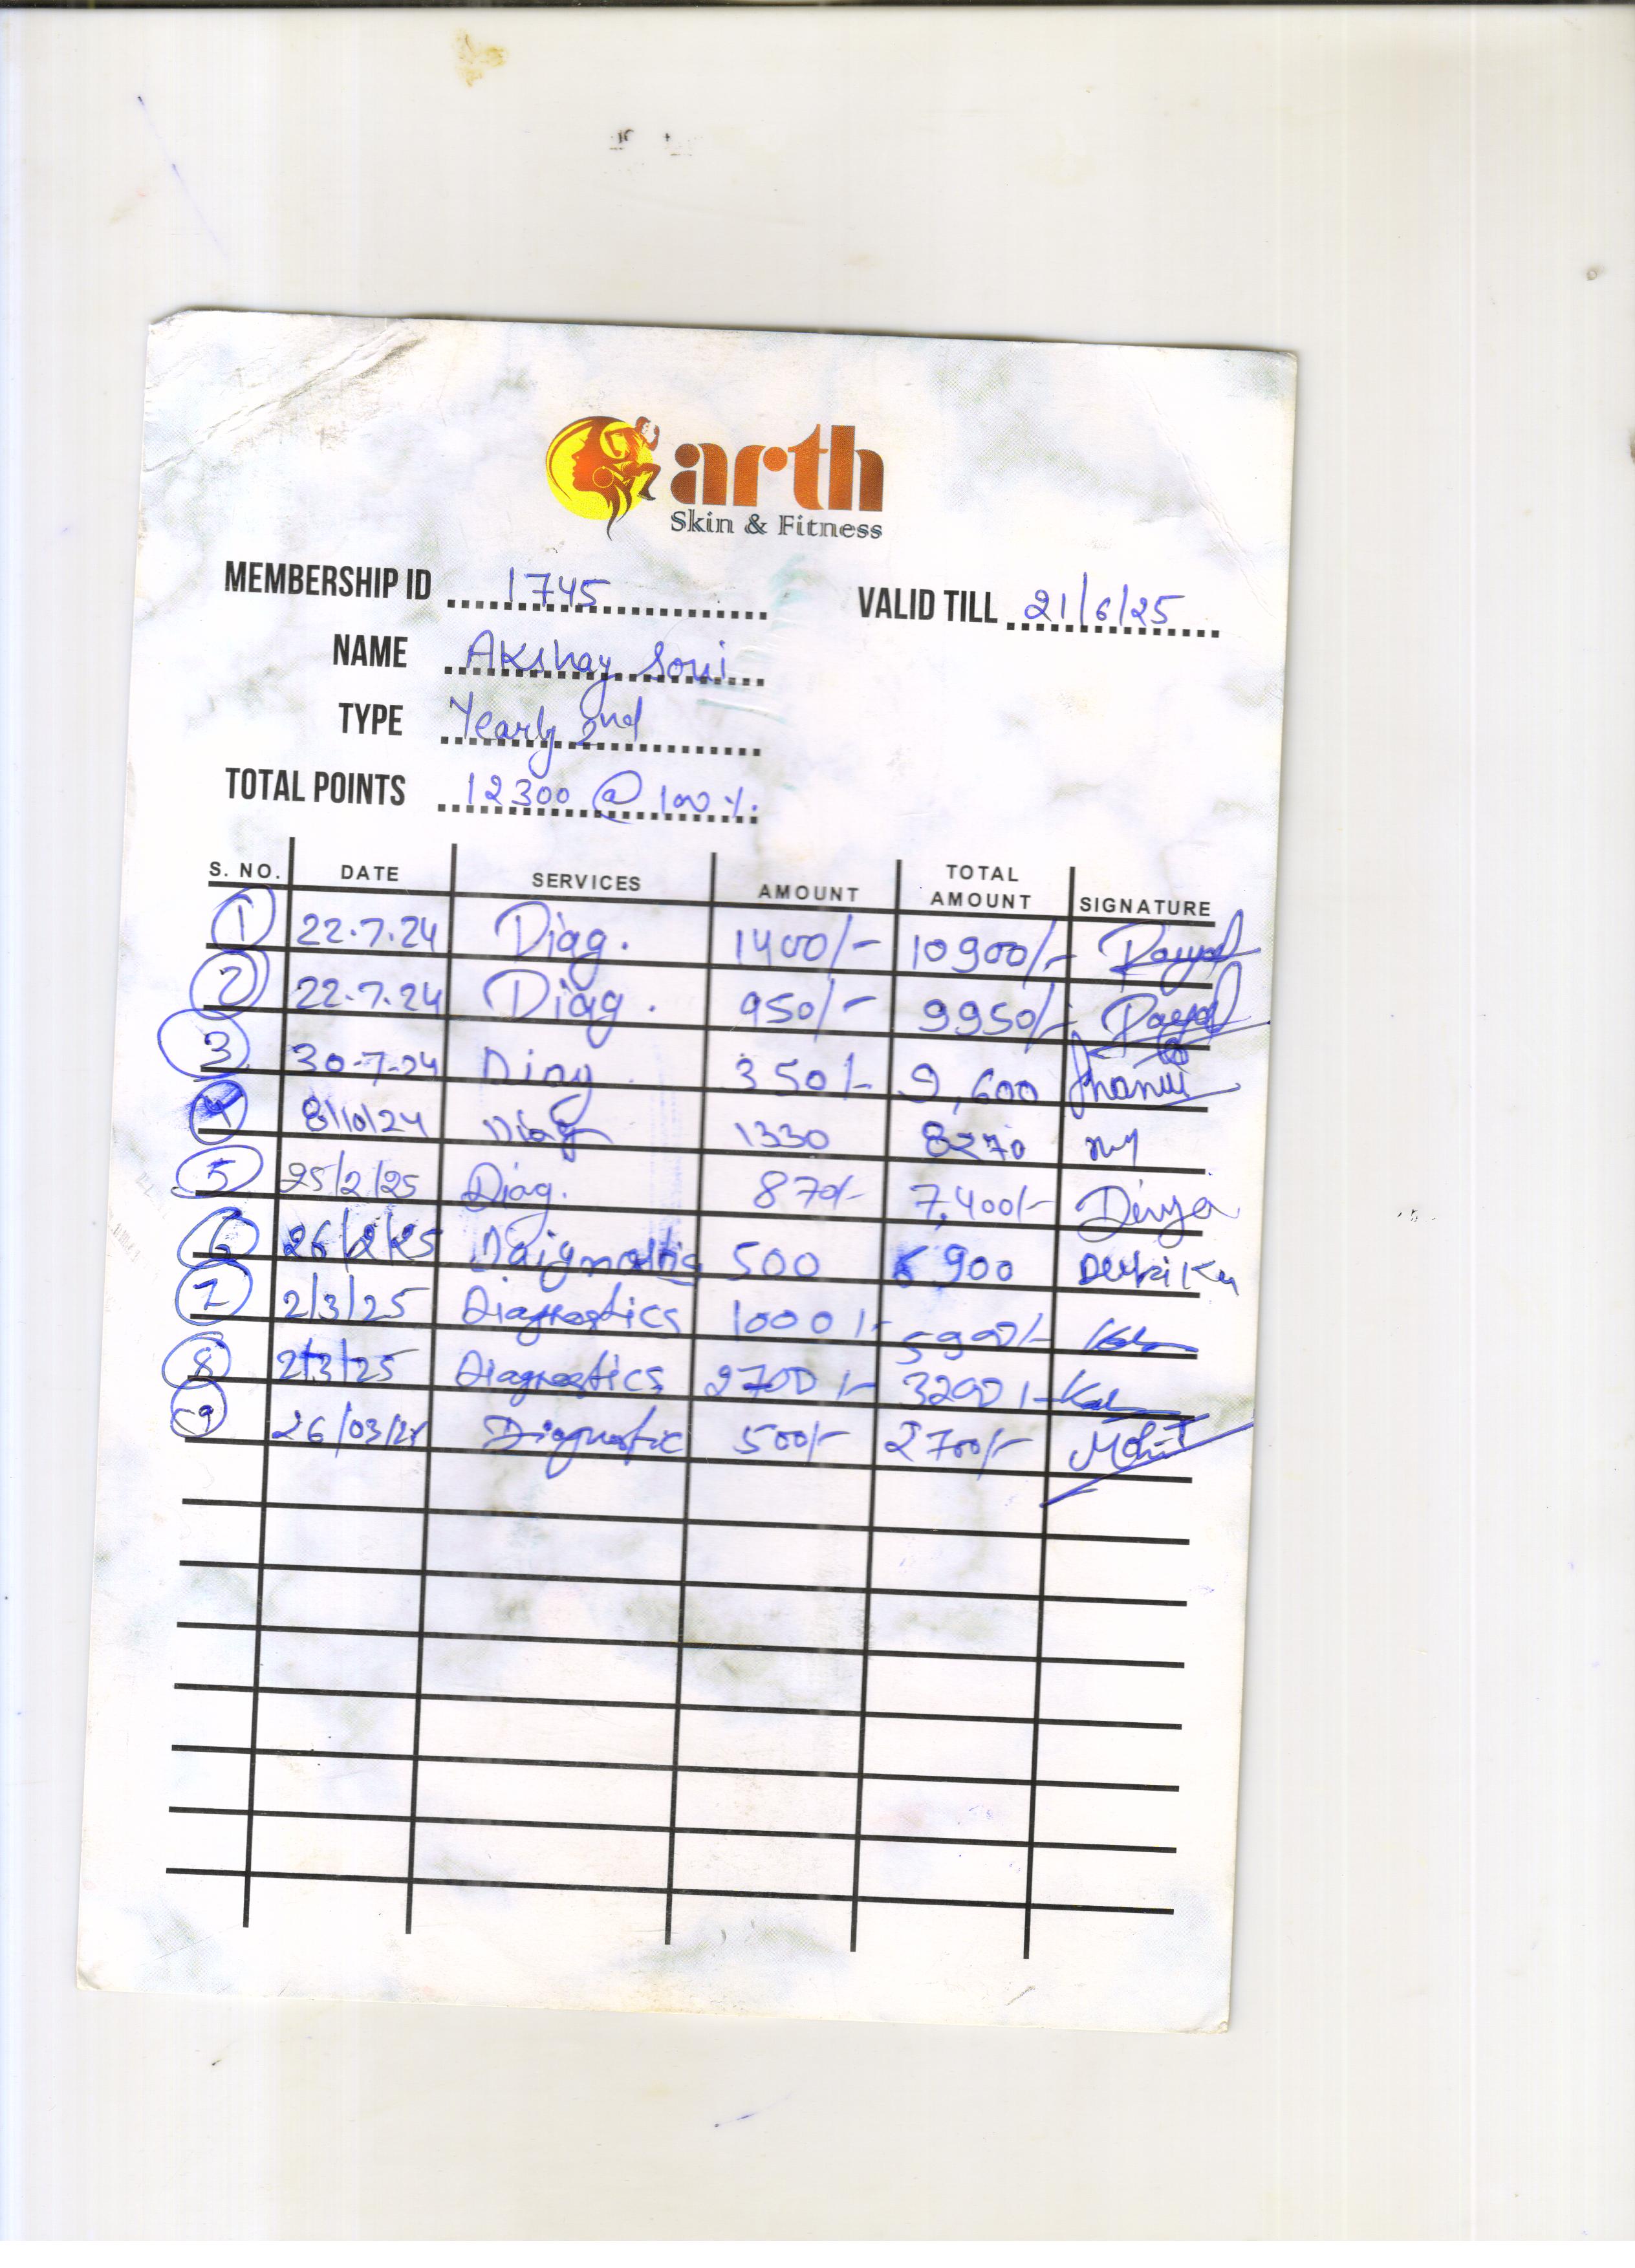 arth
Skin & Fitness
MEMBERSHIP ID 1745 VALID TILL 21/6/25
NAME Akshay Soni
TYPE Yearly 2nd
TOTAL POINTS 12300 @ 100 %.
S. NO. DATE SERVICES AMOUNT TOTAL AMOUNT SIGNATURE
1 22.7.24 Diag. 1400/- 10900/- Payal
2 22.7.24 Diag. 950/- 9950/- Payal
3 30-7-24 Diag. 350/- 9,600
4 8/10/24 Diag 1330 8270
5 25/2/25 Diag. 870/- 7,400/- Divya
6 26/2/25 Daignostis 500 6900
7 2/3/25 Diagnostics 1000/- 5900/-
8 2/3/25 Diagnostics 2700/- 3200/-
9 26/03/25 Diagnostic 500/- 2700/- Mohit